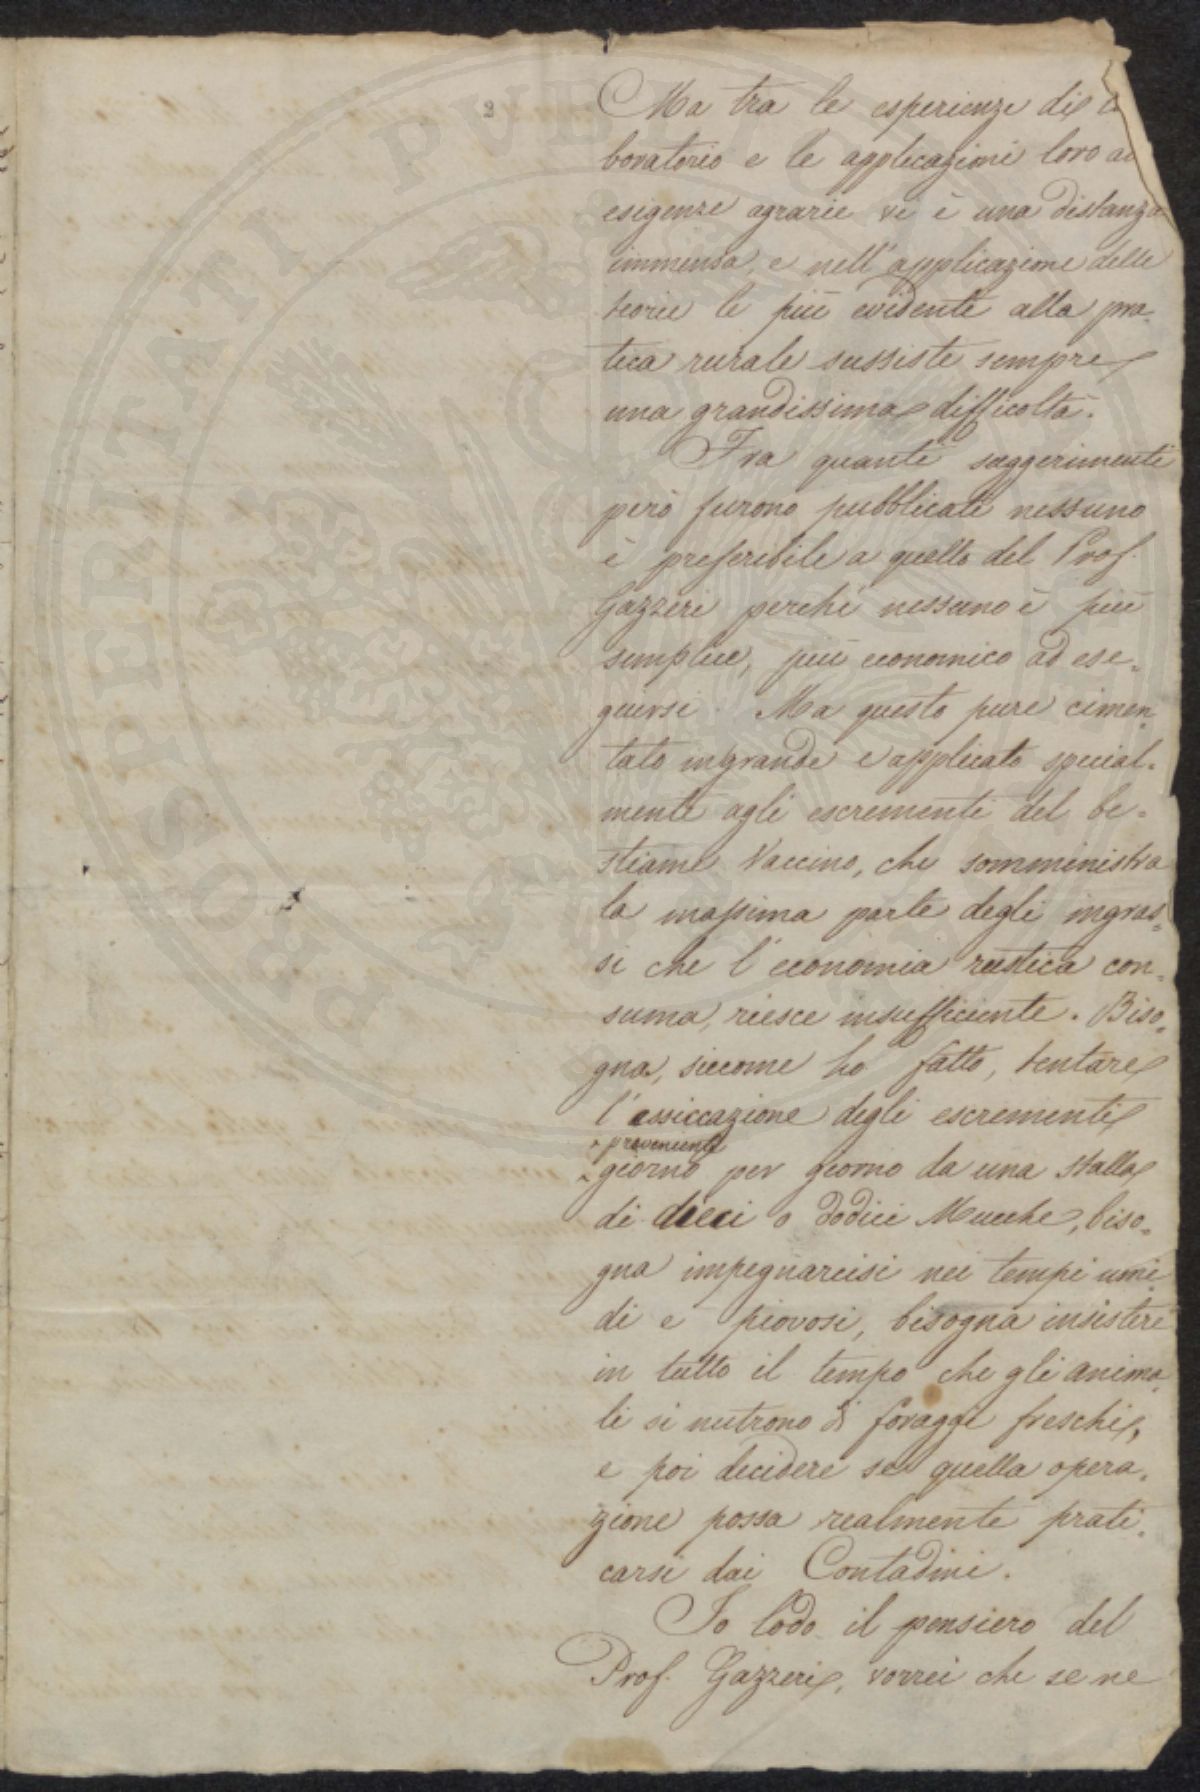 2
Ma tra le esperienze di
boratorio e le applicazioni loro
esigenze agrarie vi è una distanza
immensa, e nell'applicazione delle
teorie le più evidenti alla pra-
tica rurale sussiste sempre
una grandissima difficoltà.
Fra quanti suggerimenti
però furono pubblicati nessuno
è preferibile a quello del Prof.
Gazzeri perché nessuno è più
semplice, più economico ad ese-
guirsi. Ma questo pure cimen-
tato in grande e applicato special-
mente agli escrementi del be-
stiame Vaccino, che somministra
la massima parte degli ingras-
si che l'economia rustica con-
suma, riesce insufficiente. Biso-
gna, siccome ho fatto, tentare
l'essiccazione degli escrementi
provenienti
giorno per giorno da una stalla
di dieci o dodici Mucche, biso-
gna impegnarcisi nei tempi umi-
di e piovosi, bisogna insistere
in tutto il tempo che gli anima-
li si nutrono di foraggi freschi,
e poi decidere se quella opera-
zione possa realmente prati-
carsi dai Contadini.
Io lodo il pensiero del
Prof. Gazzeri, vorrei che se ne
PROSPERITATI PVBLICAE AVGENDAE